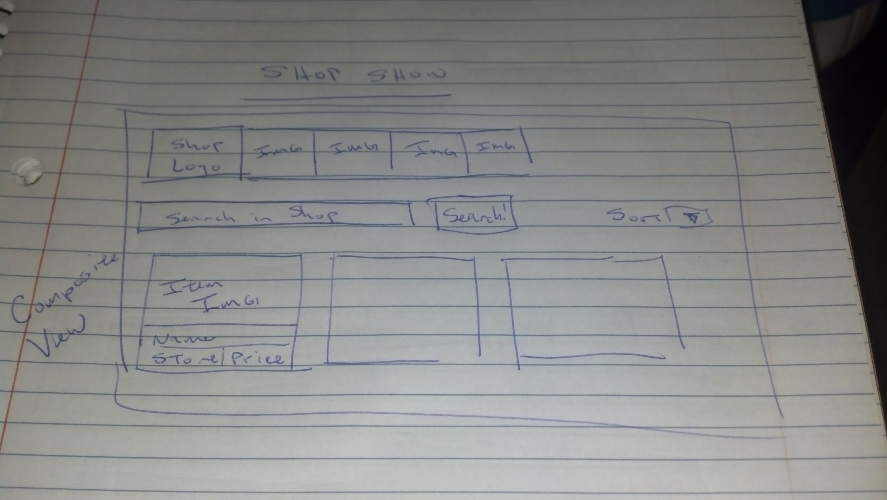 SHOP SHOW
Shop Logo
ImG
ImG
ImG
ImG
Search in Shop
Search!
Sort
Composite
View
Item
ImG
Name
Store/Price